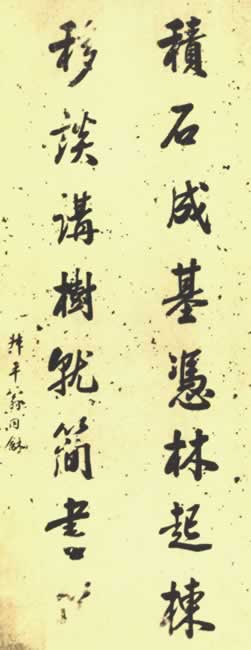 積石成基憑林起棟
移談講樹就簡書
翁同龢